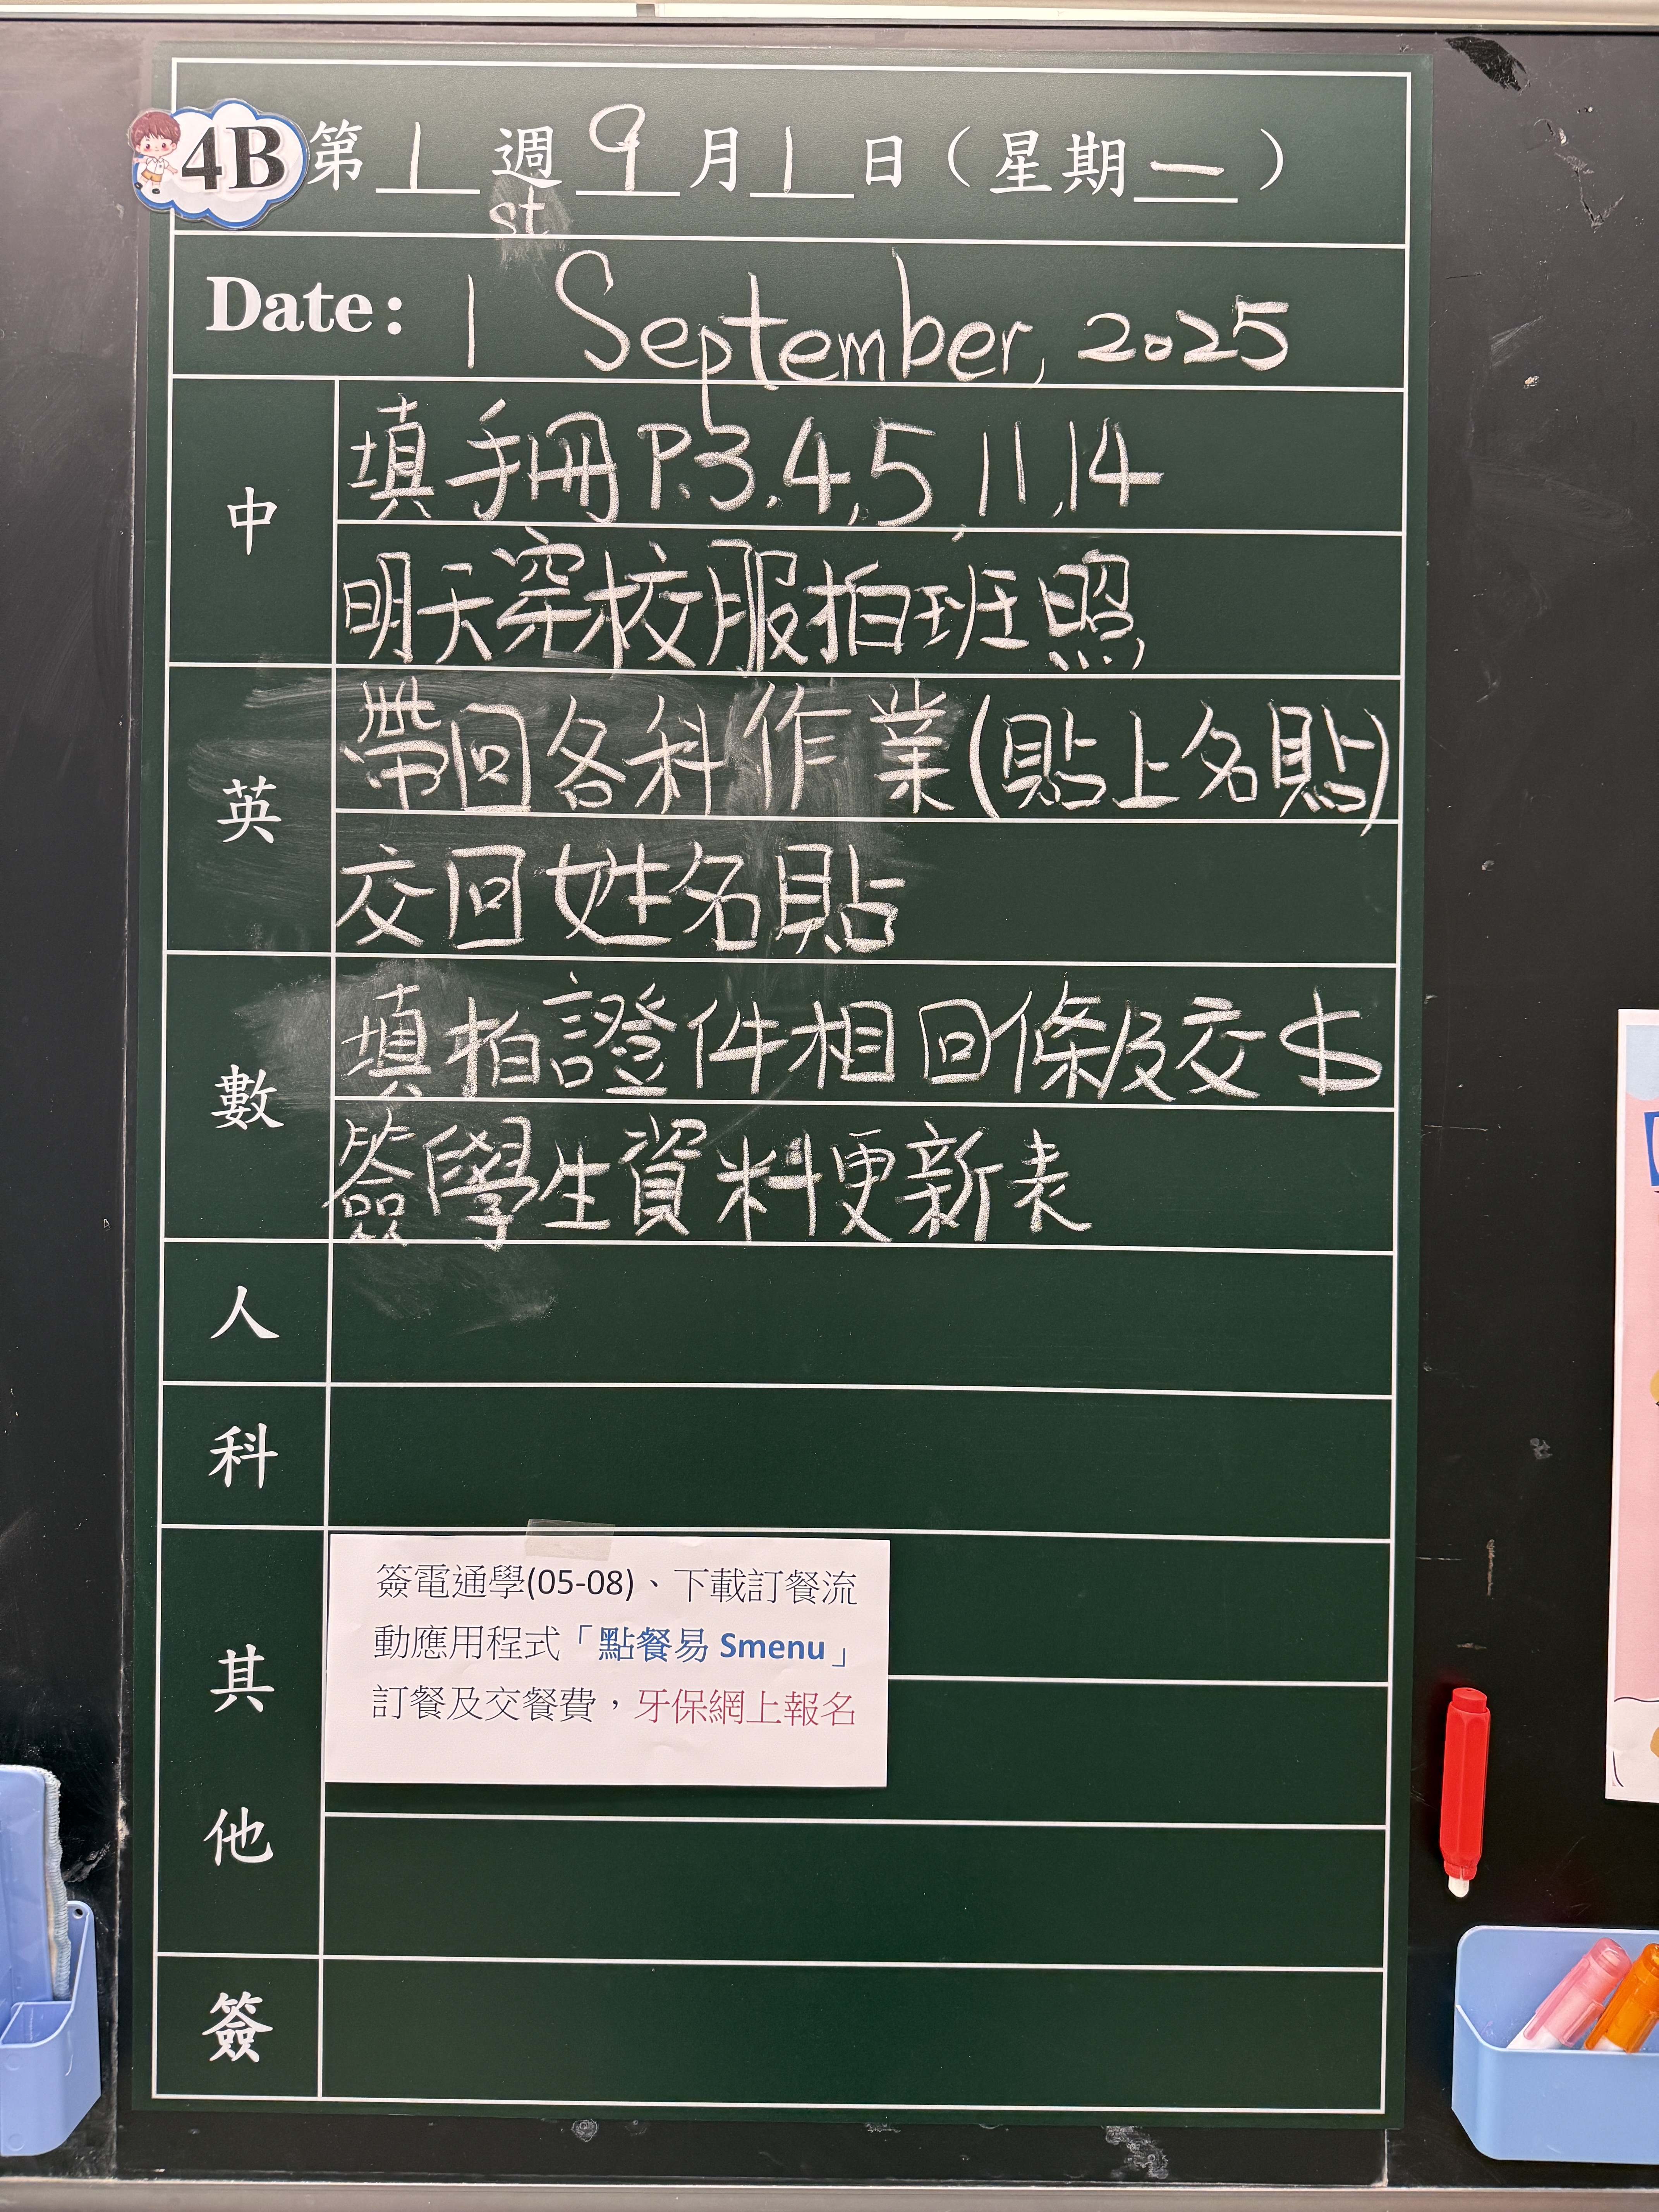 4B 第 1 週 9 月 1 日（星期 一 ）
st
Date: 1 September, 2025
中
填手冊 P.3,4,5 11,14
明天穿校服拍班照
英
帶回各科作業(貼上名貼)
交回姓名貼
數
填拍證件相回條及交$
簽學生資料更新表
人
科
其他
簽電通學(05-08)、下載訂餐流
動應用程式「點餐易 Smenu」
訂餐及交餐費，牙保網上報名
簽